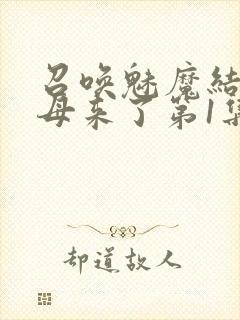 召唤魅魔结
母来了第1集
却道故人